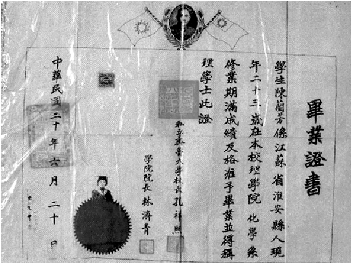 畢業證書
學生陳蘭蓀係江蘇省淮安縣人現
年二十三歲在本校理學院化學系
修業期滿成績及格准予畢業並得稱
理學士此證
私立齊魯大學校長孔祥熙
學院院長林濟青
中華民國二十年六月二十日